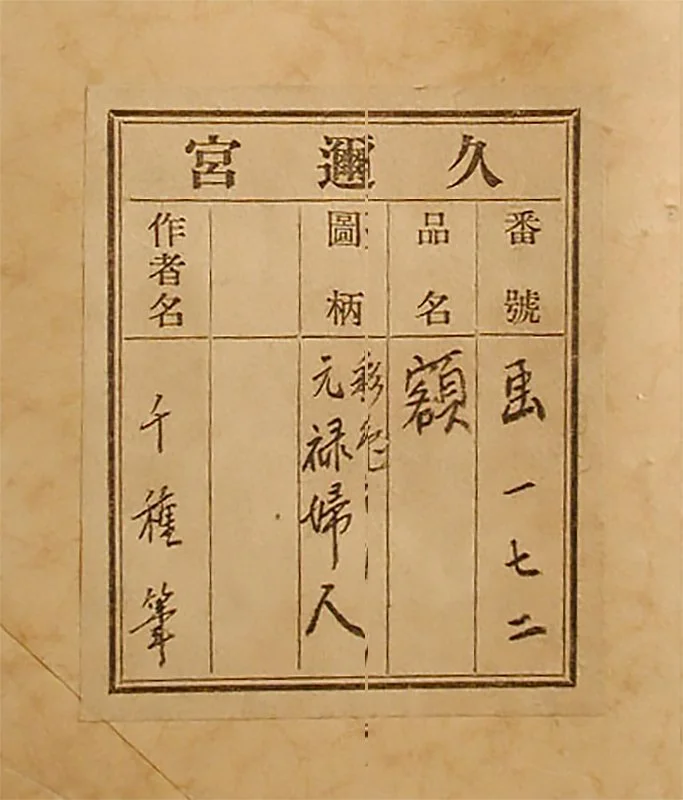 久邇宮
番號
画一七二
品名
額
圖柄
彩色
元禄婦人
作者名
千種筆